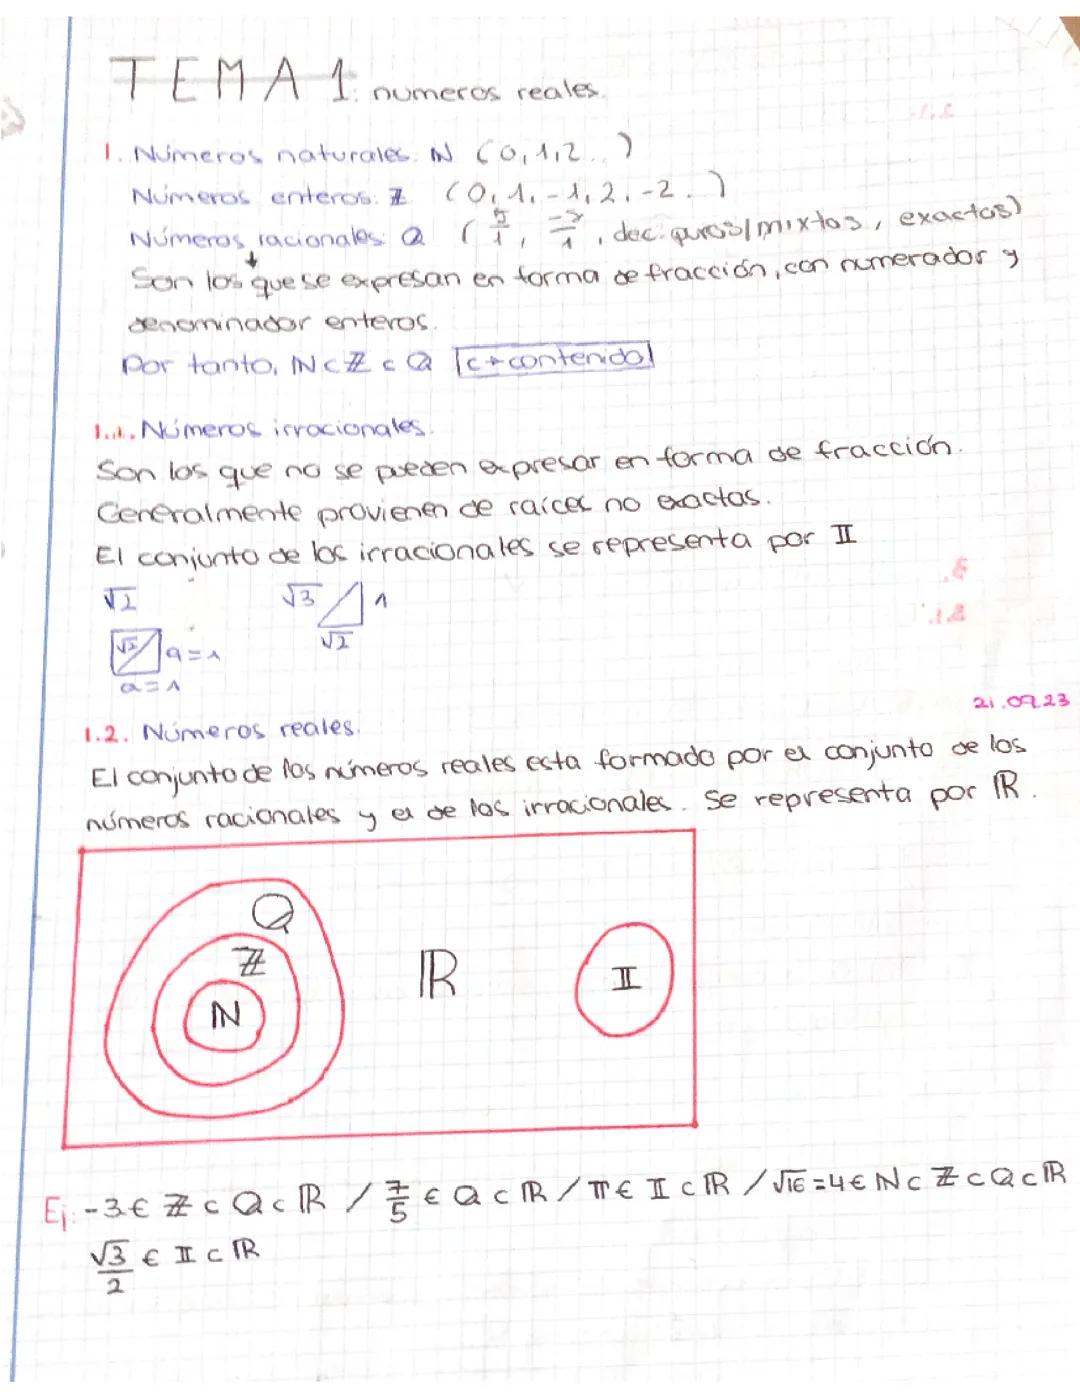 TEMA 1: numeros reales.
1. Números naturales: ℕ (0,1,2...)
Números enteros: ℤ (0,1,-1,2,-2..)
Números racionales: Q (5/1, /1, dec. puros/mixtos, exactos)
↓
Son los que se expresan en forma de fracción, con numerador y
denominador enteros.
Por tanto, ℕ⊂ℤ⊂Q ⊂→contenido
1.1. Números irracionales.
Son los que no se pueden expresar en forma de fracción.
Generalmente provienen de raíces no exactas.
El conjunto de los irracionales se representa por 𝕀
√2 √3 1
√2
√2 a=1
a=1
21.09.23
1.2. Números reales.
El conjunto de los números reales esta formado por el conjunto de los
números racionales y el de los irracionales. Se representa por ℝ.
Q
ℤ
ℕ
ℝ
𝕀
Ej: -3∈ ℤ⊂Q⊂ℝ / 7/5 ∈ Q⊂ℝ / π∈ 𝕀⊂ℝ / √16=4∈ ℕ⊂ℤ⊂Q⊂ℝ
√3/2 ∈ 𝕀⊂ℝ